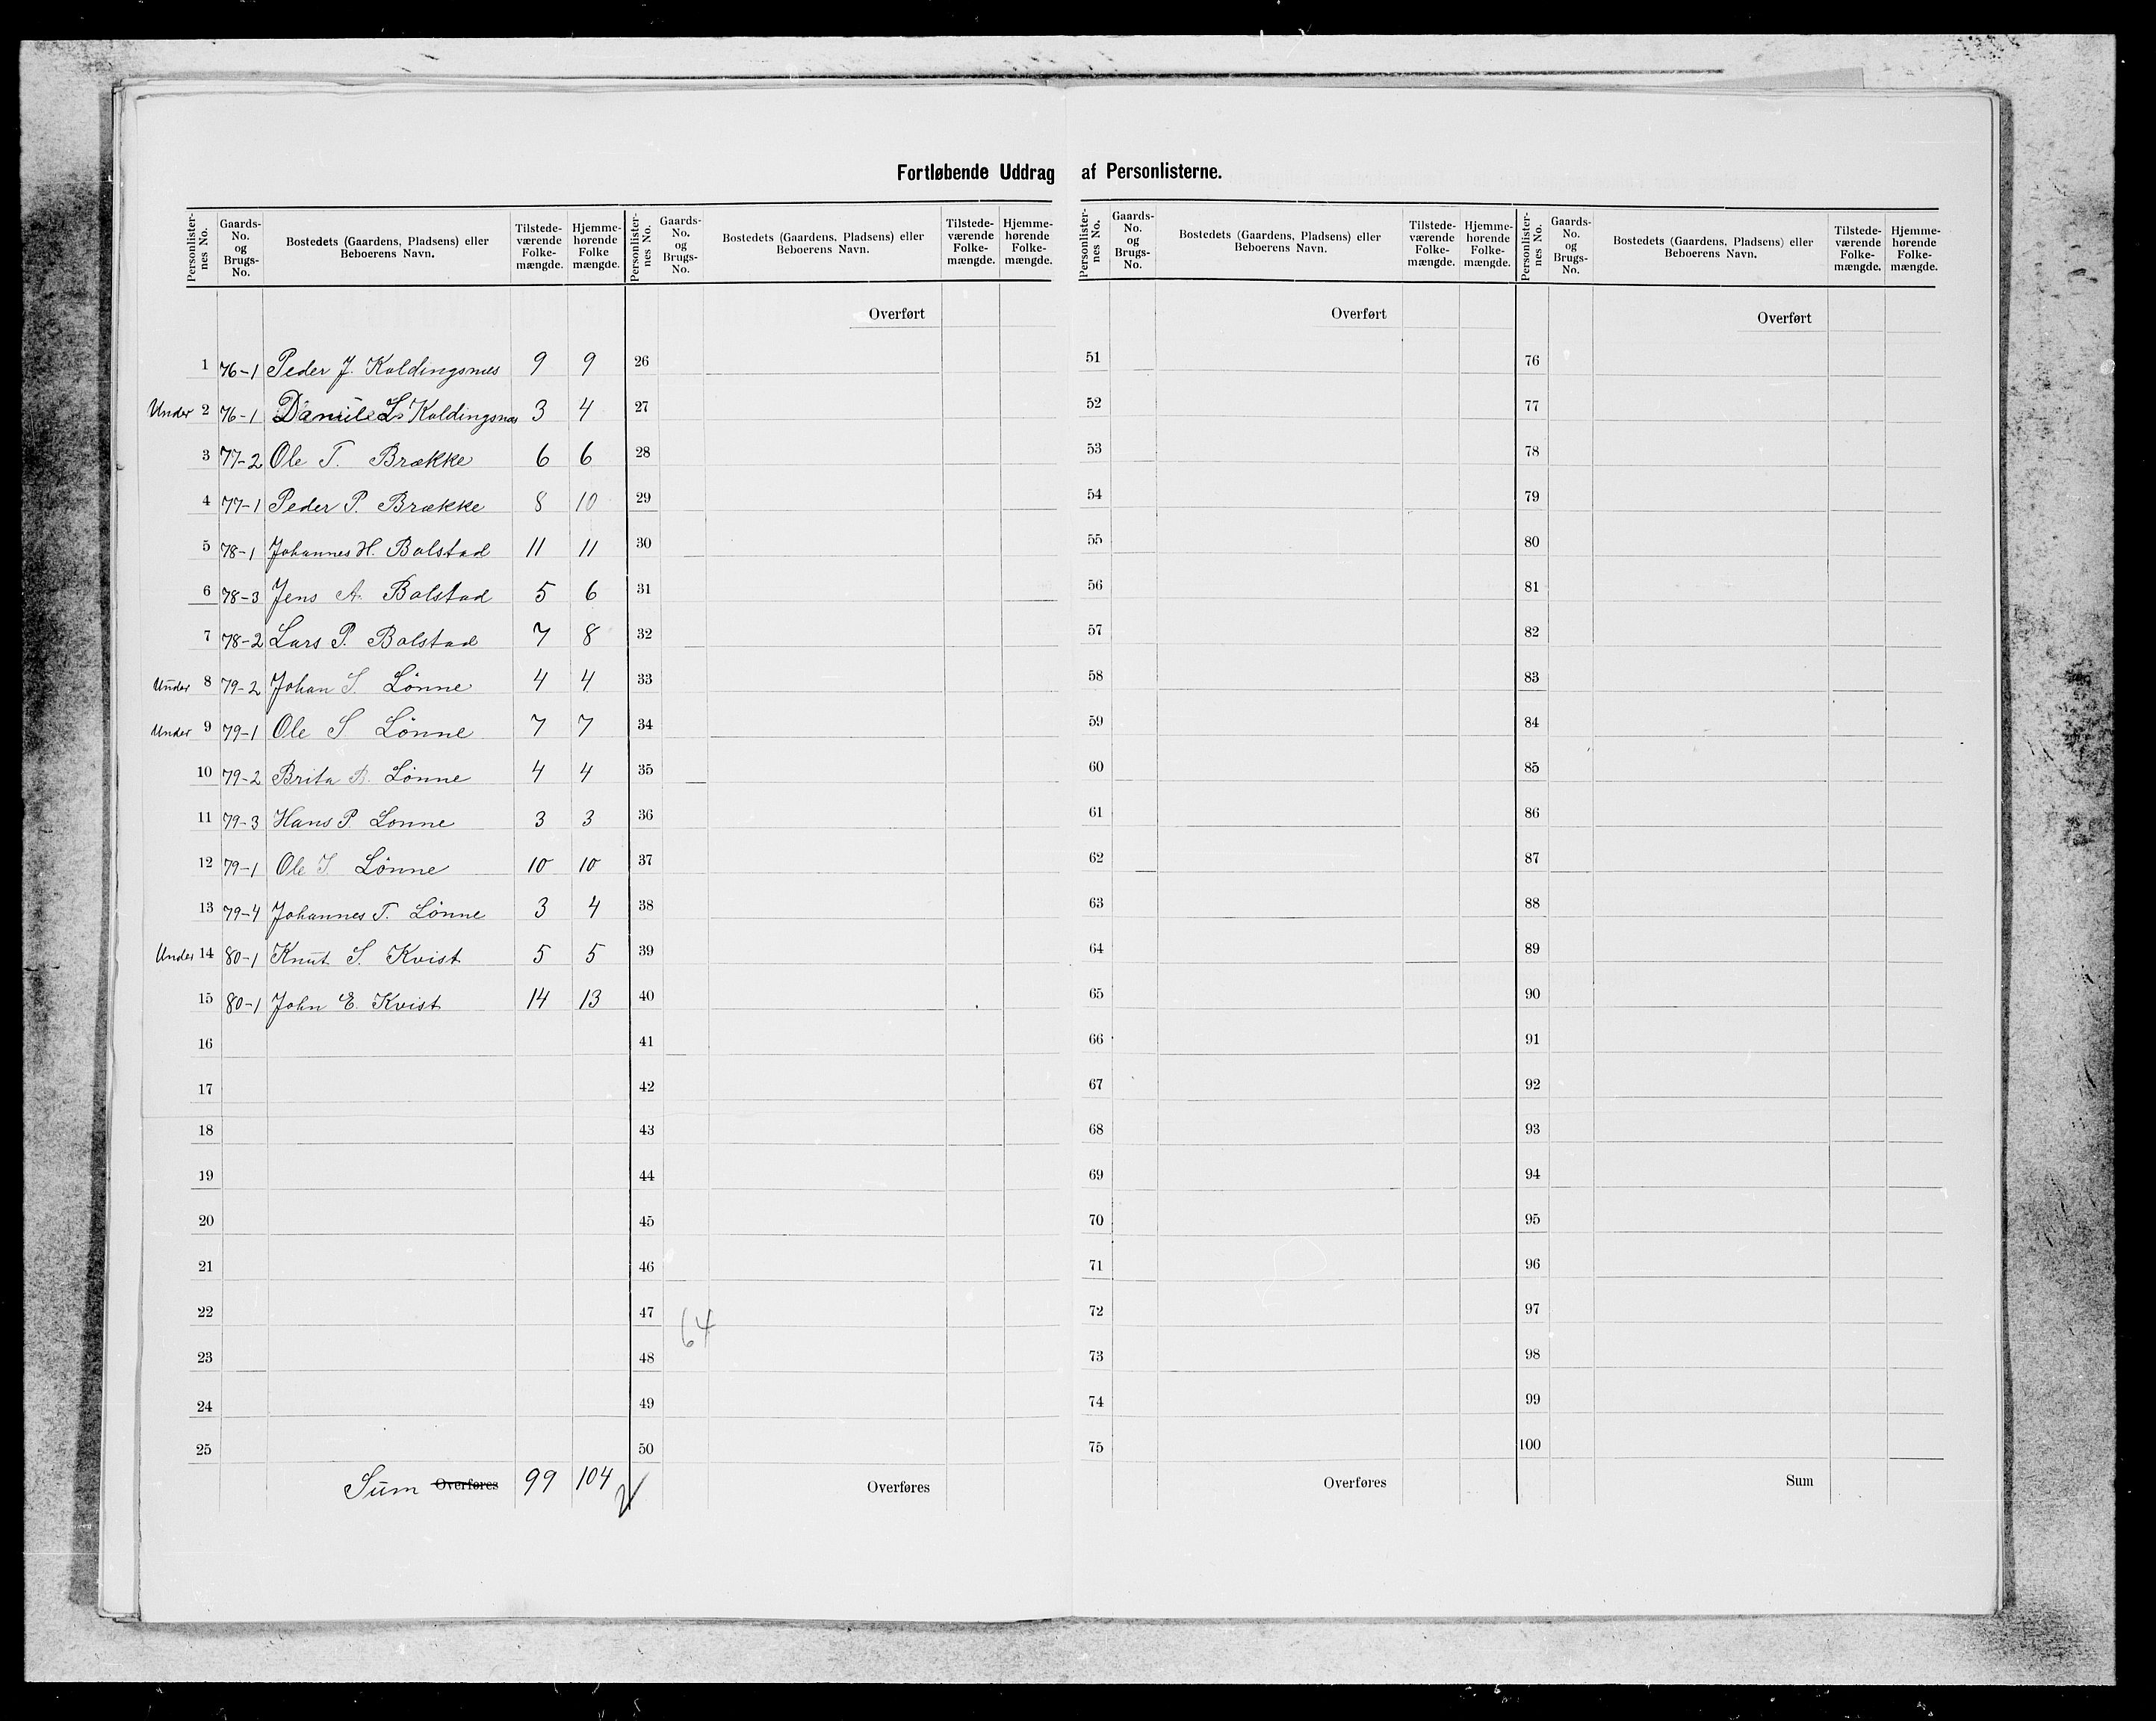 Fortløbende Uddrag af Personlisterne.
Personlister-nes No. Gaards-No. og Brugs-No. Bostedets (Gaardens, Pladsens) eller Beboerens Navn. Tilstede-værende Folke-mængde. Hjemme-hørende Folke mængde. Personlister-nes No. Gaards-No. og Brugs-No. Bostedets (Gaardens, Pladsens) eller Beboerens Navn. Tilstede-værende Folke-mængde. Hjemme-hørende Folke-mængde. Personlister-nes No. Gaards-No. og Brugs-No. Bostedets (Gaardens, Pladsens) eller Beboerens Navn. Tilstede-værende Folke-mængde. Hjemme-hørende Folke-mængde. Personlister-nes No. Gaards-No. og Brugs-No. Bostedets (Gaardens, Pladsens) eller Beboerens Navn. Tilstede-værende Folke-mængde. Hjemme-hørende Folke-mængde.
Overført Overført Overført
1 76-1 Peder J. Koldingsnes 9 9 26 51 76
Under 2 76-1 L. Koldingsnes 3 4 27 52 77
3 77-2 Ole T. Brække 6 6 28 53 78
4 77-1 Peder P. Brække 8 10 29 54 79
5 78-1 Johannes H. Bolstad 11 11 30 55 80
6 78-3 Jens A. Bolstad 5 6 31 56 81
7 78-2 Lars P. Bolstad 7 8 32 57 82
Under 8 79-2 Johan S. Lönne 4 4 33 58 83
Under 9 79-1 Ole S Lönne 7 7 34 59 84
10 79-2 Brita B. Lönne 4 4 35 60 85
11 79-3 Hans P. Lonne 3 3 36 61 86
12 79-1 Ole Lönne 10 10 37 62 87
13 79-4 Johannes T. Lönne 3 4 38 63 88
Under 14 80-1 Knut S. Kvist 5 5 39 64 89
15 80-1 John E. Kvist 14 13 40 65 90
16 41 66 91
17 42 67 92
18 43 68 93
19 44 69 94
20 45 70 95
21 46 71 96
22 47 64 72 97
23 48 73 98
24 49 74 99
25 50 75 100
Sum Overføres 99 104 Overføres Overføres Sum